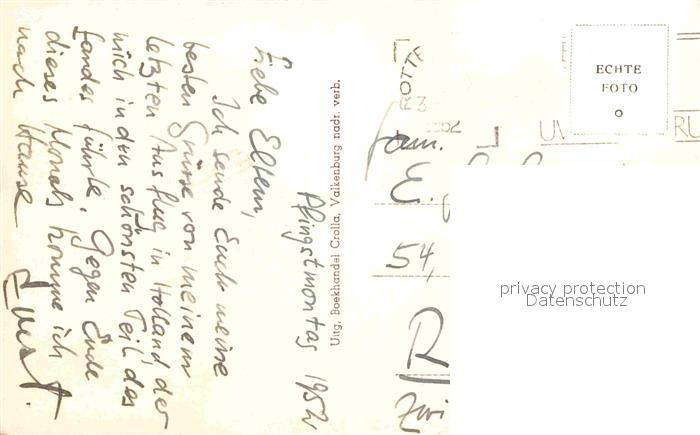 Pfingstmontag 1952
Liebe Eltern,
Ich sende Euch meine
besten Grüsse von meinem
letzten Ausflug in Holland, der
mich in den schönsten Teil des
Landes führte. Gegen Ende
dieses Monats komme ich
nach Hause
Ernst.
Uitg. Boekhandel Crolla, Valkenburg nadr. verb.
ROTTA
ECHTE
FOTO
Fam.
E.
54,
R
privacy protection
Datenschutz